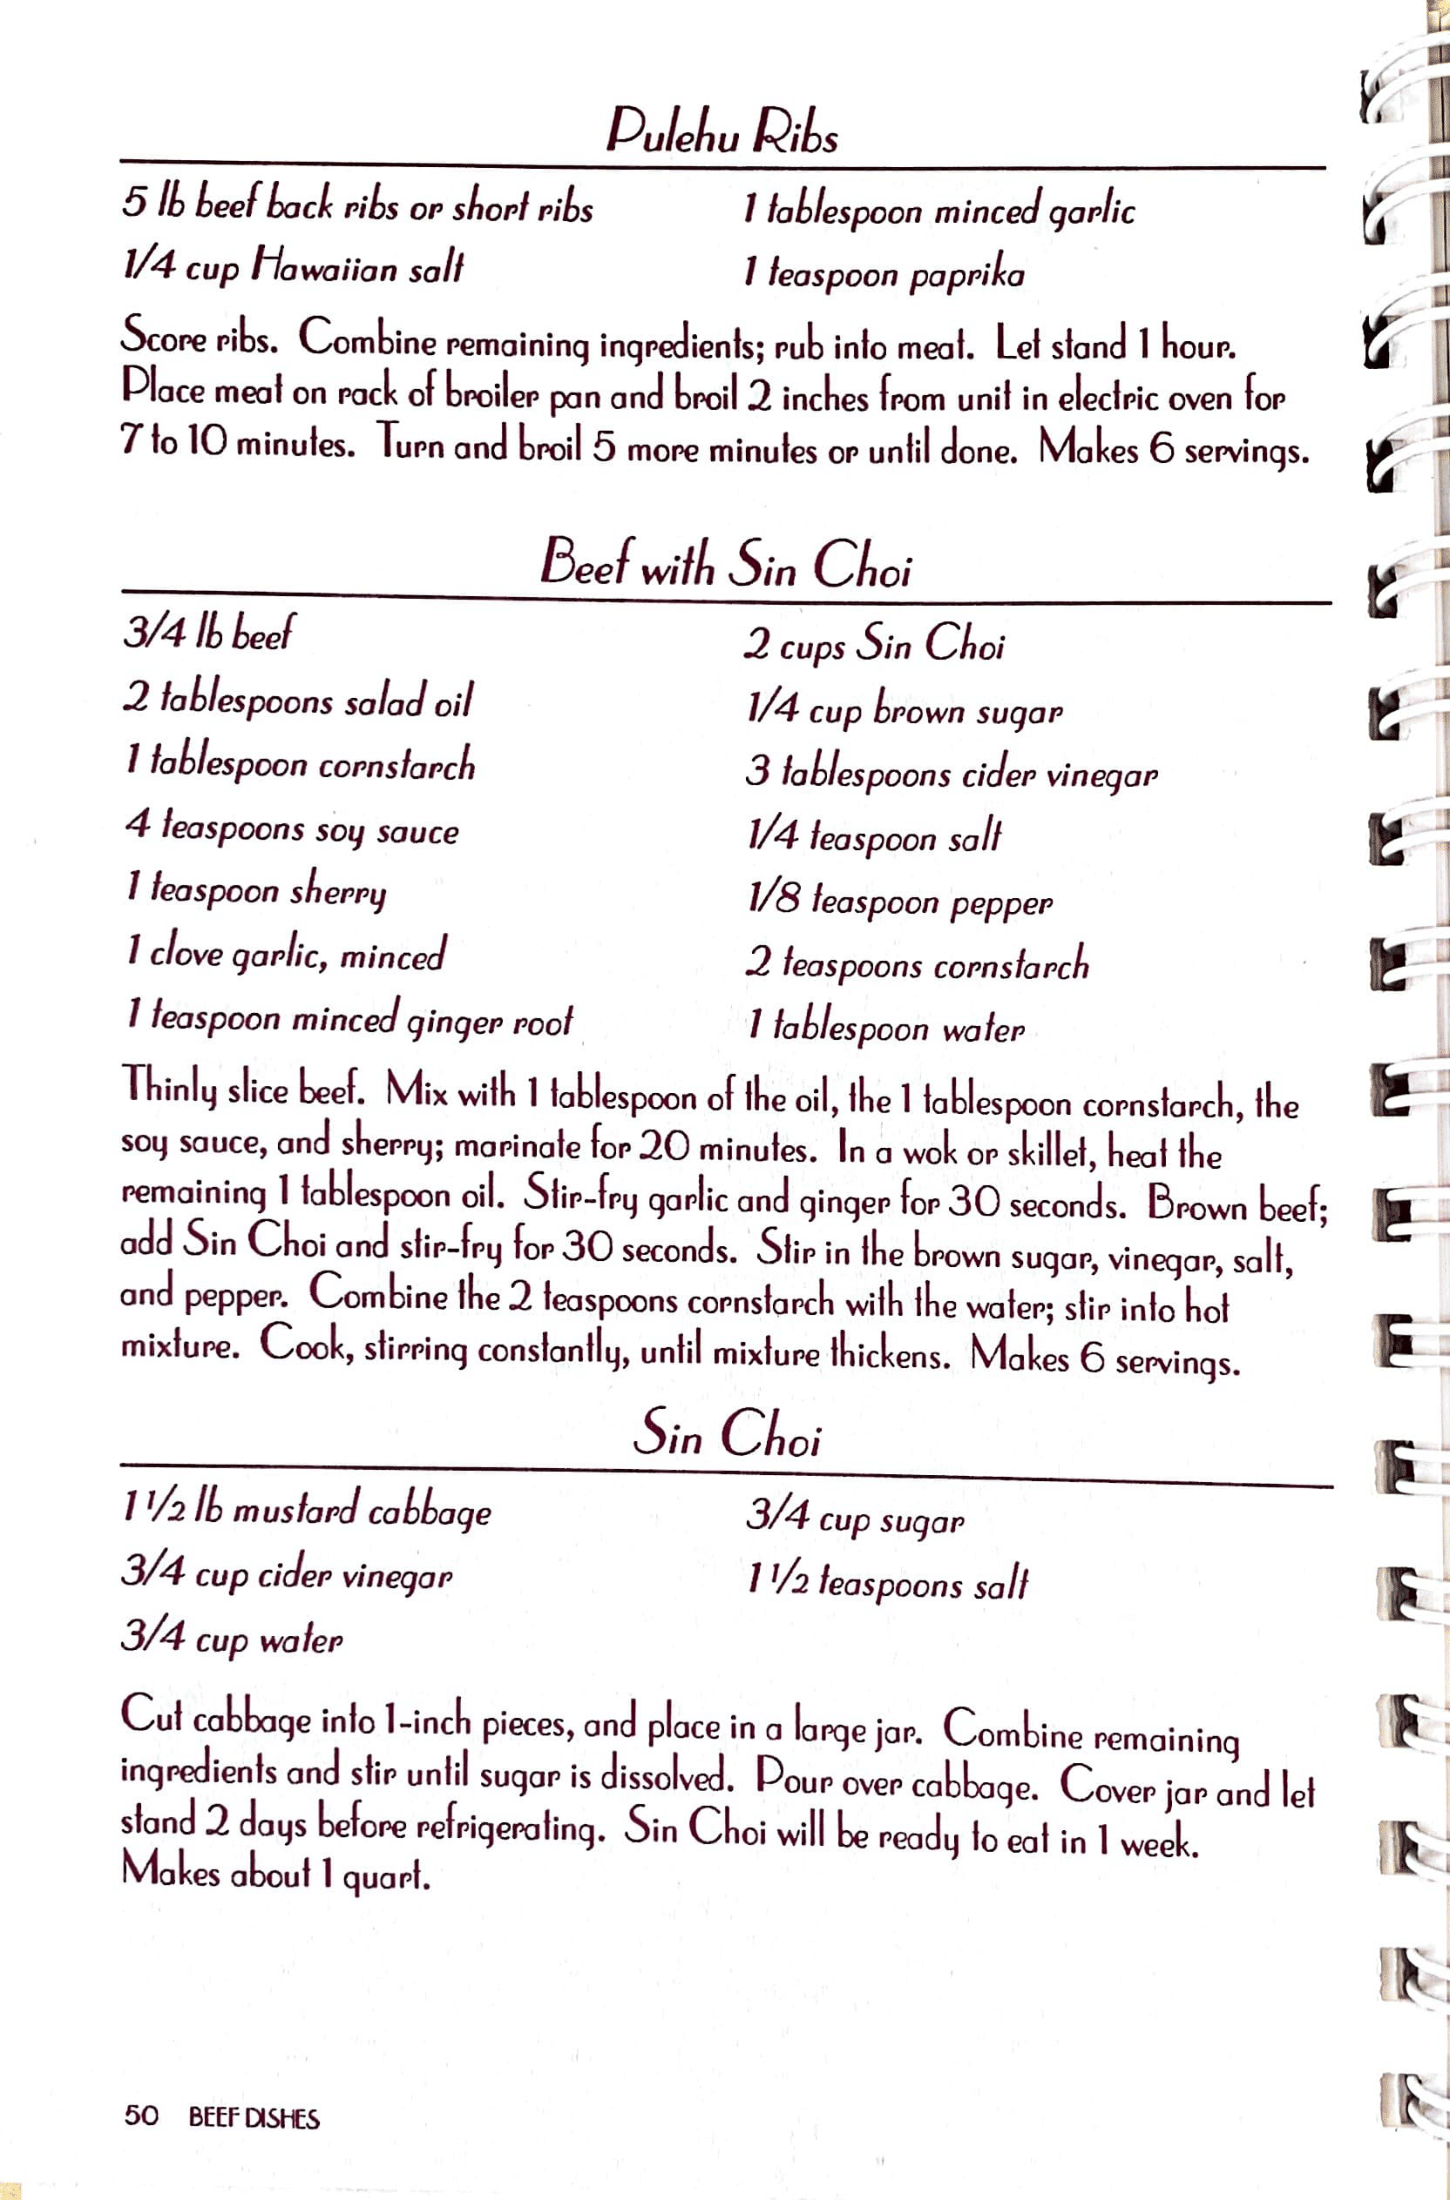 Pulehu Ribs
5 lb beef back ribs or short ribs
1/4 cup Hawaiian salt
1 tablespoon minced garlic
1 teaspoon paprika
Score ribs. Combine remaining ingredients; rub into meat. Let stand 1 hour.
Place meat on rack of broiler pan and broil 2 inches from unit in electric oven for
7 to 10 minutes. Turn and broil 5 more minutes or until done. Makes 6 servings.
Beef with Sin Choi
3/4 lb beef
2 tablespoons salad oil
1 tablespoon cornstarch
4 teaspoons soy sauce
1 teaspoon sherry
1 clove garlic, minced
1 teaspoon minced ginger root
2 cups Sin Choi
1/4 cup brown sugar
3 tablespoons cider vinegar
1/4 teaspoon salt
1/8 teaspoon pepper
2 teaspoons cornstarch
1 tablespoon water
Thinly slice beef. Mix with 1 tablespoon of the oil, the 1 tablespoon cornstarch, the
soy sauce, and sherry; marinate for 20 minutes. In a wok or skillet, heat the
remaining 1 tablespoon oil. Stir-fry garlic and ginger for 30 seconds. Brown beef;
add Sin Choi and stir-fry for 30 seconds. Stir in the brown sugar, vinegar, salt,
and pepper. Combine the 2 teaspoons cornstarch with the water; stir into hot
mixture. Cook, stirring constantly, until mixture thickens. Makes 6 servings.
Sin Choi
1 1/2 lb mustard cabbage
3/4 cup cider vinegar
3/4 cup water
3/4 cup sugar
1 1/2 teaspoons salt
Cut cabbage into 1-inch pieces, and place in a large jar. Combine remaining
ingredients and stir until sugar is dissolved. Pour over cabbage. Cover jar and let
stand 2 days before refrigerating. Sin Choi will be ready to eat in 1 week.
Makes about 1 quart.
50 BEEF DISHES